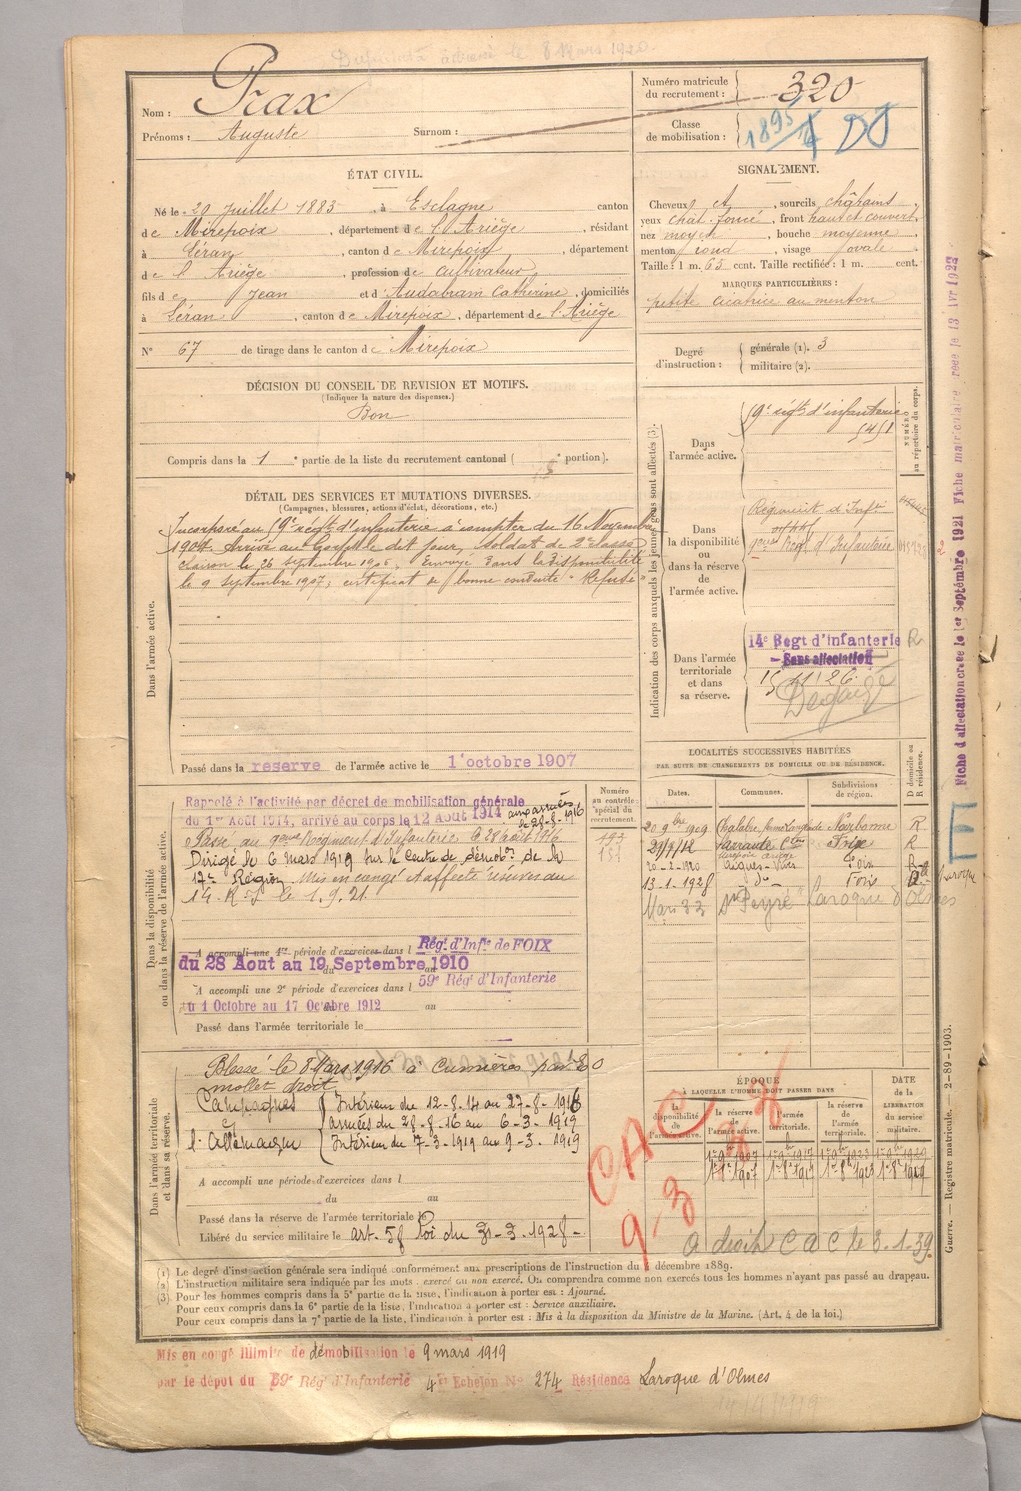 Duplicata adressé le 8 Mars 1920
Nom : Prax
Prénoms : Auguste Surnom :
Numéro matricule du recrutement : 320
Classe de mobilisation : 1895
ÉTAT CIVIL.
Né le 20 Juillet 1883, à Esclagne canton
de Mirepoix, département de l'Ariège, résidant
à Léran, canton de Mirepoix, département
de l'Ariège, profession de Cultivateur
fils de Jean et d'Audabram Catherine, domiciliés
à Léran, canton de Mirepoix, département de l'Ariège
N° 67 de tirage dans le canton de Mirepoix
SIGNALEMENT.
Cheveux et, sourcils châtains
yeux chat. foncé, front haut et couvert,
nez moyen, bouche moyenne
menton rond, visage ovale
Taille : 1 m. 65 cent. Taille rectifiée : 1 m. cent.
MARQUES PARTICULIÈRES :
petite cicatrice au menton
Degré d'instruction : générale (1). 3
militaire (2).
DÉCISION DU CONSEIL DE REVISION ET MOTIFS.
(Indiquer la nature des dispenses.)
Bon
Compris dans la 1e partie de la liste du recrutement cantonal ( e portion).
DÉTAIL DES SERVICES ET MUTATIONS DIVERSES.
(Campagnes, blessures, actions d'éclat, décorations, etc.)
Dans l'armée active.
Incorporé au 9e régt d'infanterie à compter du 16 Novembre
1904. Arrivé au Corps le dit jour, soldat de 2e classe
clairon le 26 septembre 1905, Envoyé dans la disponibilité
le 9 septembre 1907; certificat de bonne conduite "Refusé"
Passé dans la reserve de l'armée active le 1' octobre 1907
Indication des corps auxquels les jeunes gens sont affectés (3).
NUMÉRO au répertoire du corps.
Dans l'armée active.
9e régt d'infanterie
5451
Dans la disponibilité ou dans la réserve de l'armée active.
Régiment d'Infie
9ème Régt d'Infanterie
Dans l'armée territoriale et dans sa réserve.
14e Regt d'infanterie R
Sans affectation
Degagé
LOCALITÉS SUCCESSIVES HABITÉES
PAR SUITE DE CHANGEMENTS DE DOMICILE OU DE RÉSIDENCE.
Dates. Communes. Subdivisions de région. D domicile ou R résidence.
20 9bre 1909 Narbonne R
Foix R
20-1-1920 Foix R
13-1-1928 do Foix
Mars 33 St Peyre Laroque d'Olmes
Dans la disponibilité ou dans la réserve de l'armée active.
Numéro au contrôle spécial du recrutement.
Rappelé à l'activité par décret de mobilisation générale
du 1er Août 1914, arrivé au corps le 12 Août 1914 aux armées le 28-8-1916
Passé au 9ème Régiment d'Infanterie le 28 août 1916
Dirigé le 6 mars 1919 sur le Centre de démobon de la
17e Région Mis en congé et affecté réserves du
14. R. I le 1.9.21.
A accompli une 1re période d'exercices dans l Régt d'Infie de FOIX
du 28 Aout au 19 Septembre 1910
A accompli une 2e période d'exercices dans l 59e Régt d'Infanterie
du 1 Octobre au 17 Octobre 1912 au
Passé dans l'armée territoriale le
Dans l'armée territoriale et dans sa réserve.
Blessé le 8 Mars 1916 à Cumières par EO
mollet droit
Campagnes Intérieur du 12-8-14 au 27-8-1916
armées du 28-8-16 au 6-3-1919
l'Allemagne Intérieur du 7-3-1919 au 9-3-1919
A accompli une période d'exercices dans l
du au
Passé dans la réserve de l'armée territoriale le
Libéré du service militaire le art. 58 Loi du 31-3-1928
ÉPOQUE
À LAQUELLE L'HOMME DOIT PASSER DANS
la disponibilité de l'armée active. la réserve de l'armée active. l'armée territoriale. la réserve de l'armée territoriale.
DATE de la LIBÉRATION du service militaire.
CAC
a droit CAC le 3.1.39.
(1) Le degré d'instruction générale sera indiqué conformément aux prescriptions de l'instruction du décembre 1889.
(2) L'instruction militaire sera indiquée par les mots : exercé ou non exercé. On comprendra comme non exercés tous les hommes n'ayant pas passé au drapeau.
(3) Pour les hommes compris dans la 5e partie de la liste, l'indication à porter est : Ajourné.
Pour ceux compris dans la 6e partie de la liste, l'indication à porter est : Service auxiliaire.
Pour ceux compris dans la 7e partie de la liste, l'indication à porter est : Mis à la disposition du Ministre de la Marine. (Art. 4 de la loi.)
Mis en congé illimité de démobilisation le 9 mars 1919
par le dépot du 59e Rég. d'Infanterie 4e Echelon N° 274 Résidence Laroque d'Olmes
Fiche d'affectation créée le 1er Septembre 1921 Fiche matriculaire créée le 13 Avr 1922
Guerre. — Registre matricule. — 2-89-1903.